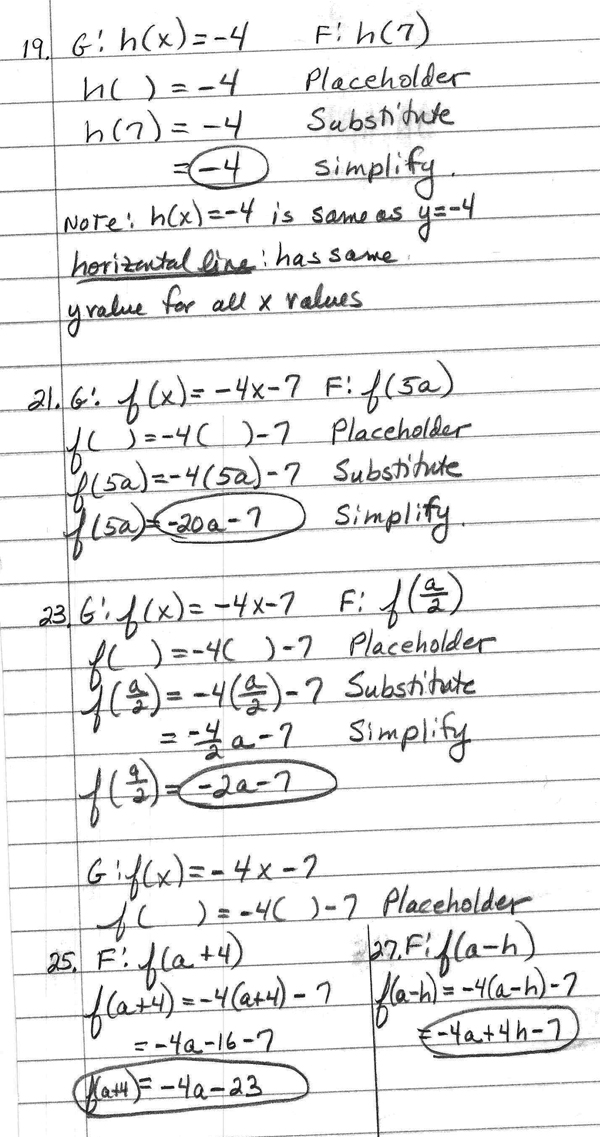 19. G: h(x) = -4 F: h(7)
h( ) = -4 Placeholder
h(7) = -4 Substitute
= -4 simplify.
Note: h(x) = -4 is same as y = -4
horizontal line: has same
y value for all x values
21. G: f(x) = -4x - 7 F: f(5a)
f( ) = -4( ) - 7 Placeholder
f(5a) = -4(5a) - 7 Substitute
f(5a) = -20a - 7 Simplify.
23. G: f(x) = -4x - 7 F: f(a/2)
f( ) = -4( ) - 7 Placeholder
f(a/2) = -4(a/2) - 7 Substitute
= -4/2 a - 7 Simplify
f(a/2) = -2a - 7
G: f(x) = -4x - 7
f( ) = -4( ) - 7 Placeholder
25. F: f(a+4)
f(a+4) = -4(a+4) - 7
= -4a - 16 - 7
f(a+4) = -4a - 23
27. F: f(a-h)
f(a-h) = -4(a-h) - 7
= -4a + 4h - 7